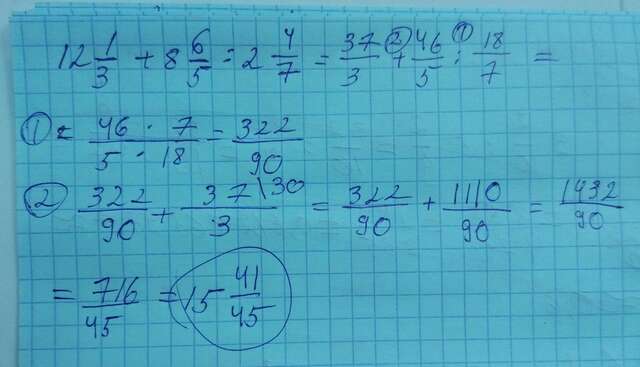 12 1/3 + 8 6/5 : 2 4/7 = 37/3 + 46/5 : 18/7 =
② ①
① = 46 · 7 / 5 · 18 = 322/90
② 322/90 + 37\30/3 = 322/90 + 1110/90 = 1432/90
= 716/45 = 15 41/45